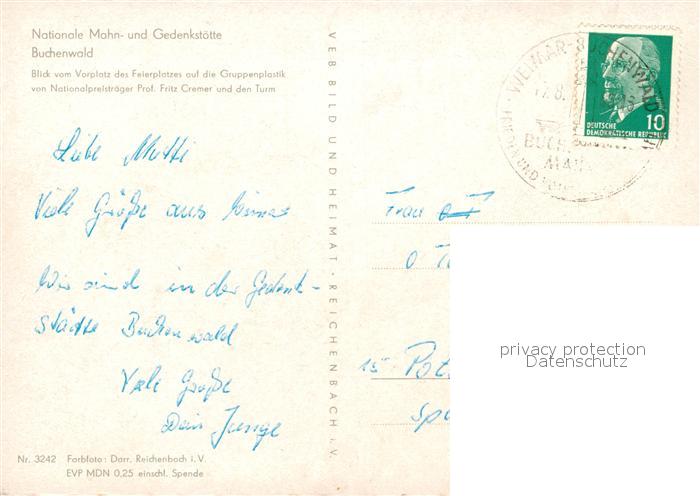 Nationale Mahn- und Gedenkstätte
Buchenwald
Blick vom Vorplatz des Feierplatzes auf die Gruppenplastik
von Nationalpreisträger Prof. Fritz Cremer und den Turm
Liebe Mutti
Viele Grüße aus
Wir sind in der Gedenk-
stätte Buchenwald
Viele Grüße
Dein Junge
Nr. 3242 Farbfoto: Darr, Reichenbach i. V.
EVP MDN 0,25 einschl. Spende
VEB BILD UND HEIMAT · REICHENBACH i. V.
WEIMAR-BUCHENWALD
17.8.
BUCH
MA
10
DEUTSCHE
DEMOKRATISCHE REPUBLIK
Frau
O T
15 Pots
Sp
privacy protection
Datenschutz